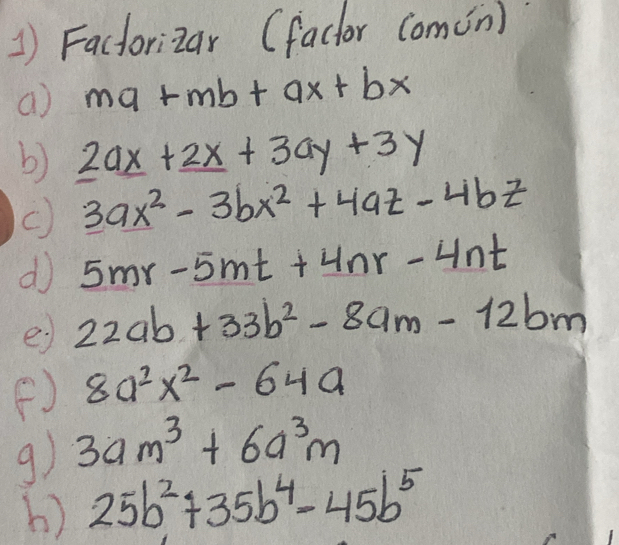 1) Factorizar (factor común)
a) ma + mb + ax + bx
b) 2ax + 2x + 3ay + 3y
c) 3ax² - 3bx² + 4az - 4bz
d) 5mr - 5mt + 4nr - 4nt
e) 22ab + 33b² - 8am - 12bm
f) 8a²x² - 64a
g) 3am³ + 6a³m
h) 25b² + 35b⁴ - 45b⁵